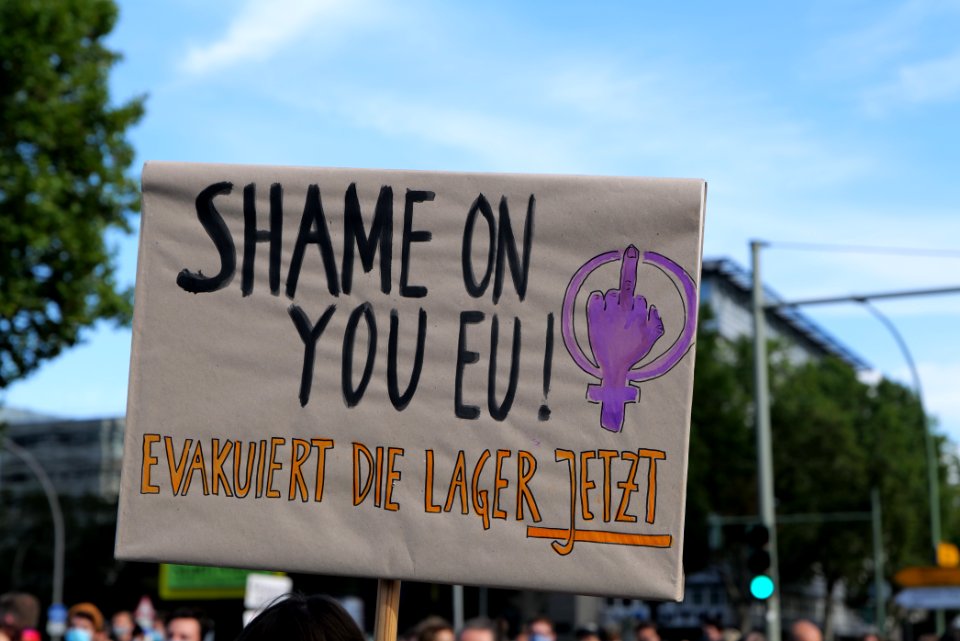 SHAME ON
YOU EU!
EVAKUIERT DIE LAGER JETZT